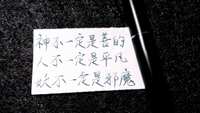 神不一定是善的
人不一定是平凡
妖不一定是邪魔